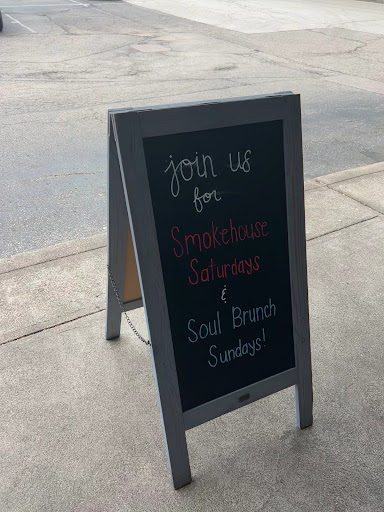 join us
for
Smokehouse
Saturdays
&
Soul Brunch
Sundays!